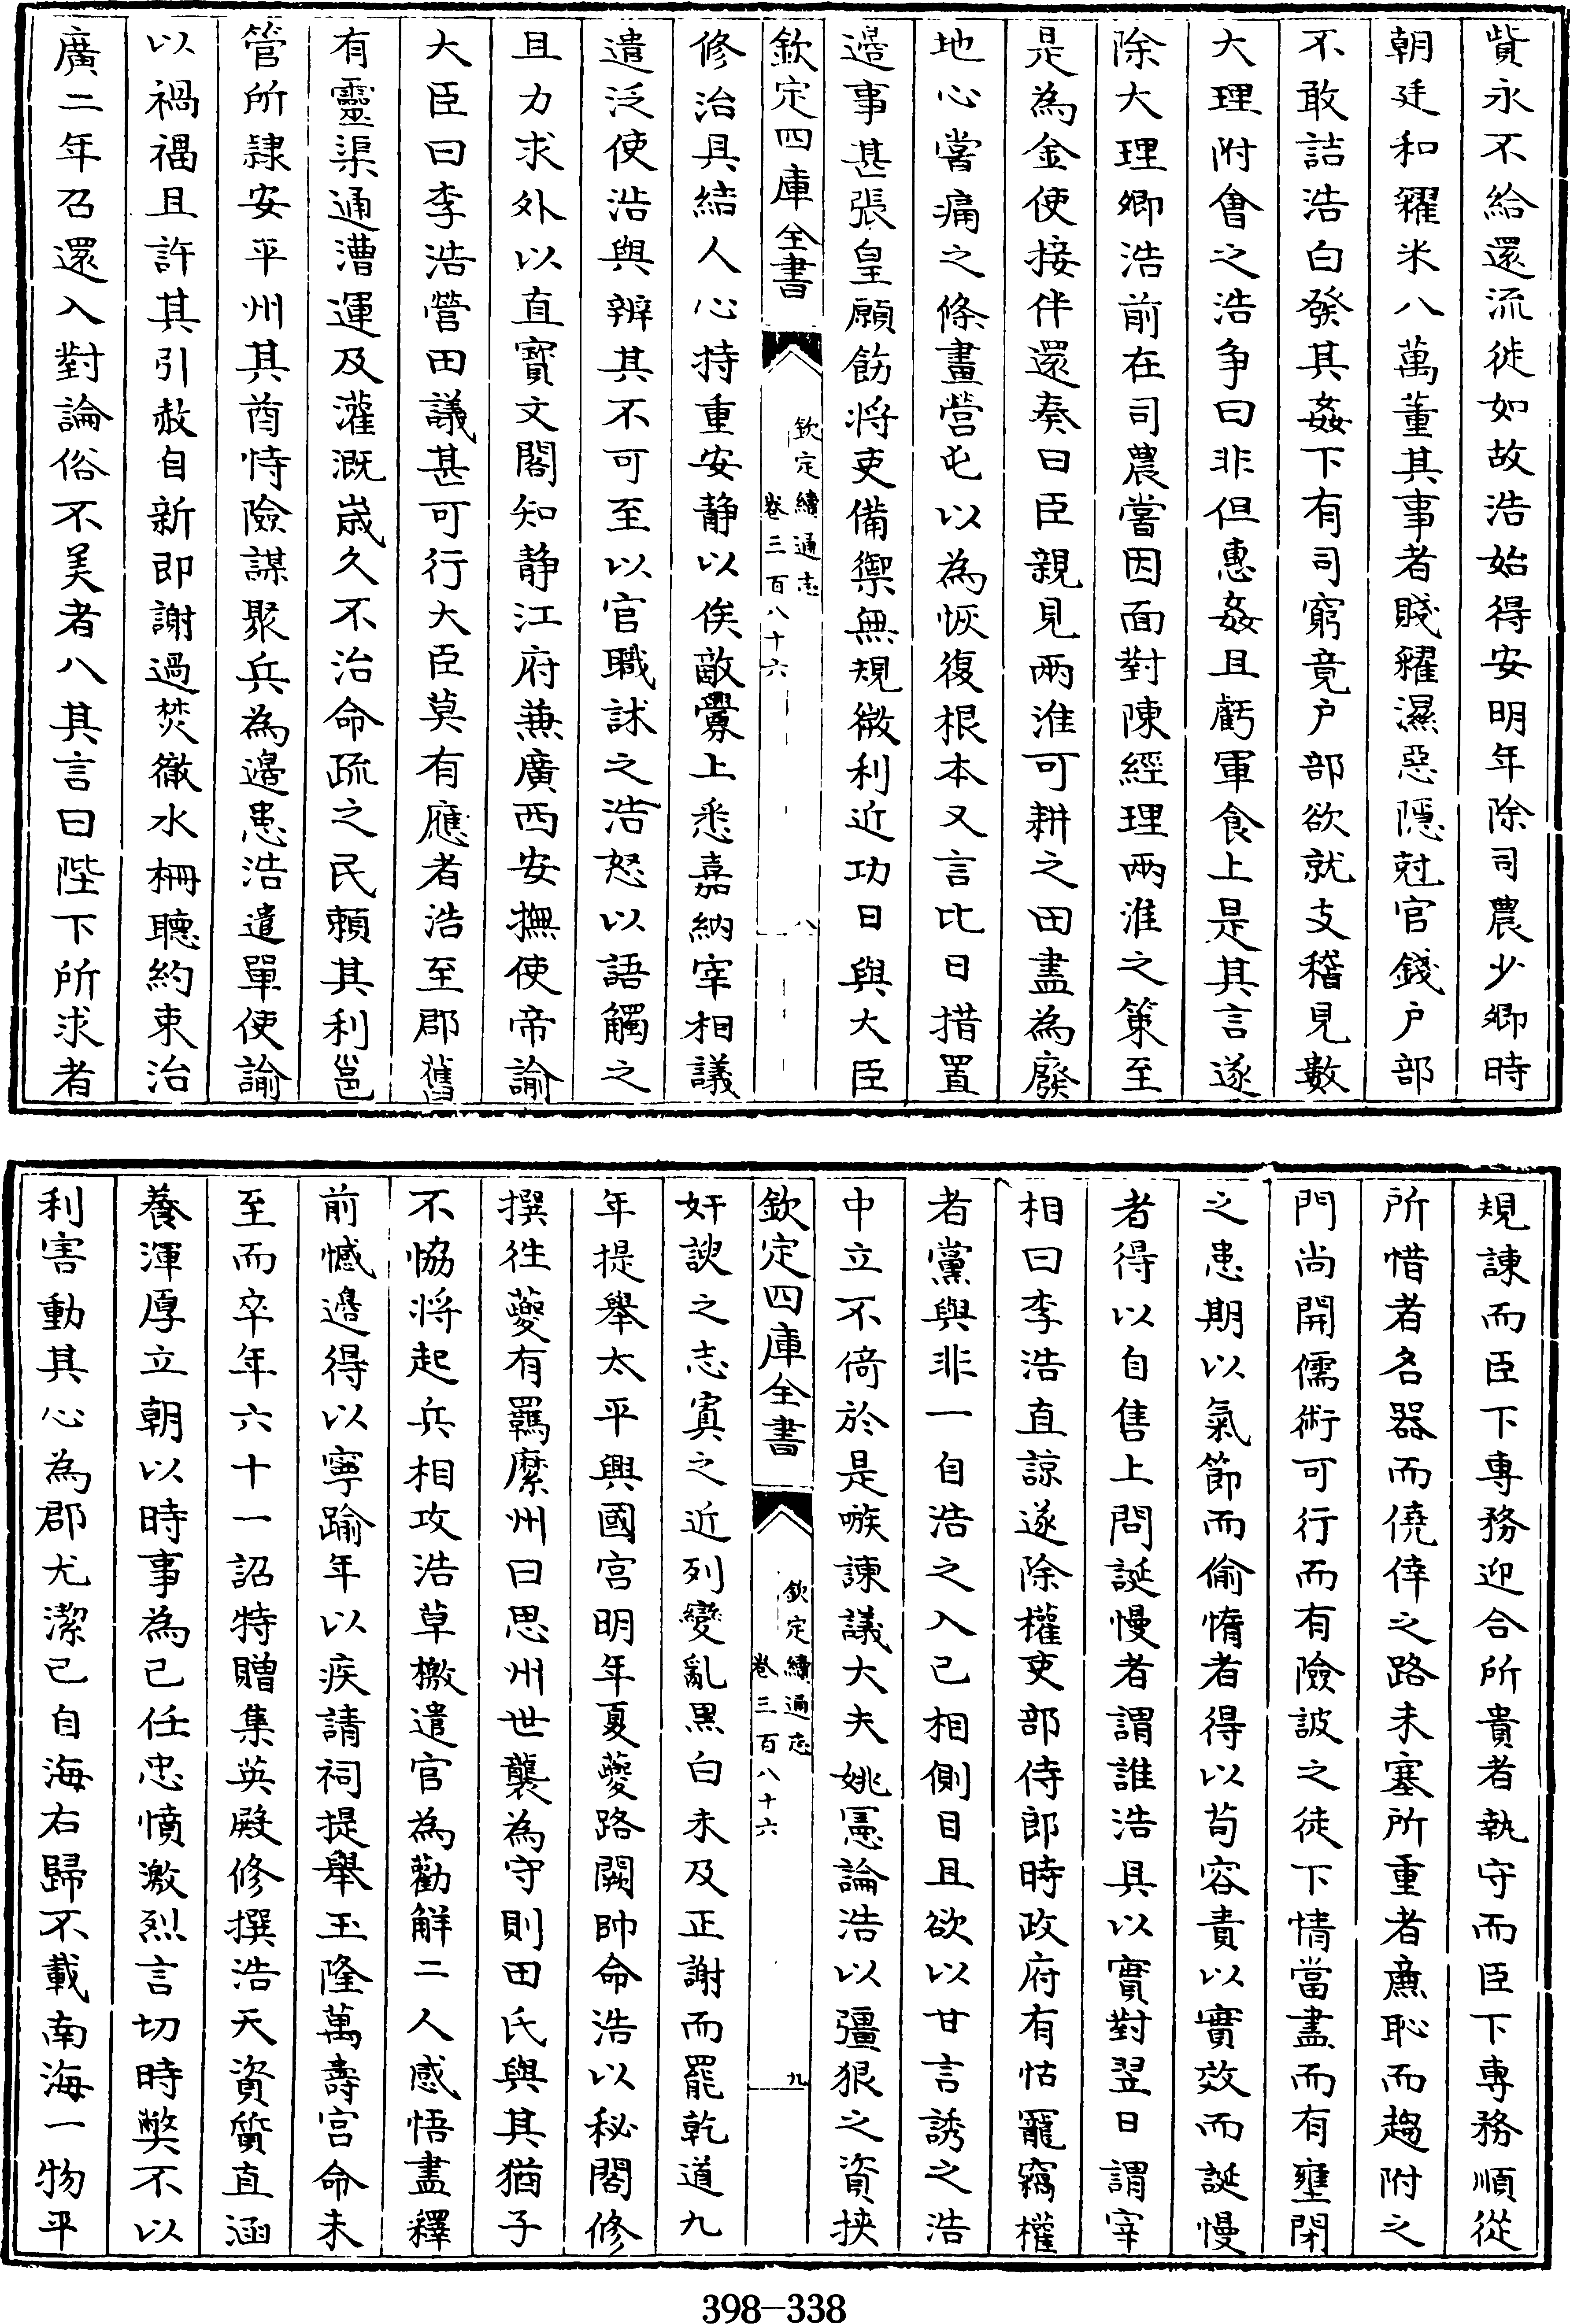 貲永不給還流徙如故浩始得安明年除司農少卿時
朝廷和糴米八萬董其事者賤糴濕惡隱尅官錢户部
不敢詰浩白發其姦下有司窮竟户部欲就支稽見數
大理附會之浩争曰非但惠姦且虧軍食上是其言遂
除大理卿浩前在司農嘗因面對陳經理兩淮之策至
是為金使接伴還奏曰臣親見兩淮可耕之田盡為廢
地心嘗痛之條畫營屯以為恢復根本又言比日措置
邉事甚張皇願飭将吏備禦無規㣲利近功日與大臣
欽定四庫全書
欽定續通志
卷三百八十六
八
修治具結人心持重安静以俟敵釁上悉嘉納宰相議
遣泛使浩與辨其不可至以官職訹之浩怒以語觸之
且力求外以直寶文閣知静江府兼廣西安撫使帝諭
大臣曰李浩營田議甚可行大臣莫有應者浩至郡舊
有靈渠通漕運及灌溉歳久不治命疏之民賴其利邕
管所隷安平州其酋恃險謀聚兵為邉患浩遣單使諭
以禍福且許其引赦自新即謝過焚徹水柵聽約束治
廣二年召還入對論俗不美者八其言曰陛下所求者
規諫而臣下專務迎合所貴者執守而臣下專務順從
所惜者名器而僥倖之路未塞所重者亷恥而趨附之
門尚開儒術可行而有險詖之徒下情當盡而有壅閉
之患期以氣節而偷惰者得以苟容責以實效而誕慢
者得以自售上問誕慢者謂誰浩具以實對翌日謂宰
相曰李浩直諒遂除權吏部侍郎時政府有怙寵竊權
者黨與非一自浩之入已相側目且欲以甘言誘之浩
中立不倚於是嗾諫議大夫姚憲論浩以彊狠之資挾
欽定四庫全書
欽定續通志
卷三百八十六
九
奸諛之志寘之近列變亂黑白未及正謝而罷乾道九
年提舉太平興國宫明年夏夔路闕帥命浩以秘閣修
撰徃夔有羈縻州曰思州世襲為守則田氏與其猶子
不恊将起兵相攻浩草檄遣官為勸解二人感悟盡釋
前憾邉得以寧踰年以疾請祠提舉玉隆萬壽宫命未
至而卒年六十一詔特贈集英殿修撰浩天資質直涵
養渾厚立朝以時事為己任忠憤激烈言切時弊不以
利害動其心為郡尤潔己自海右歸不載南海一物平
398-338